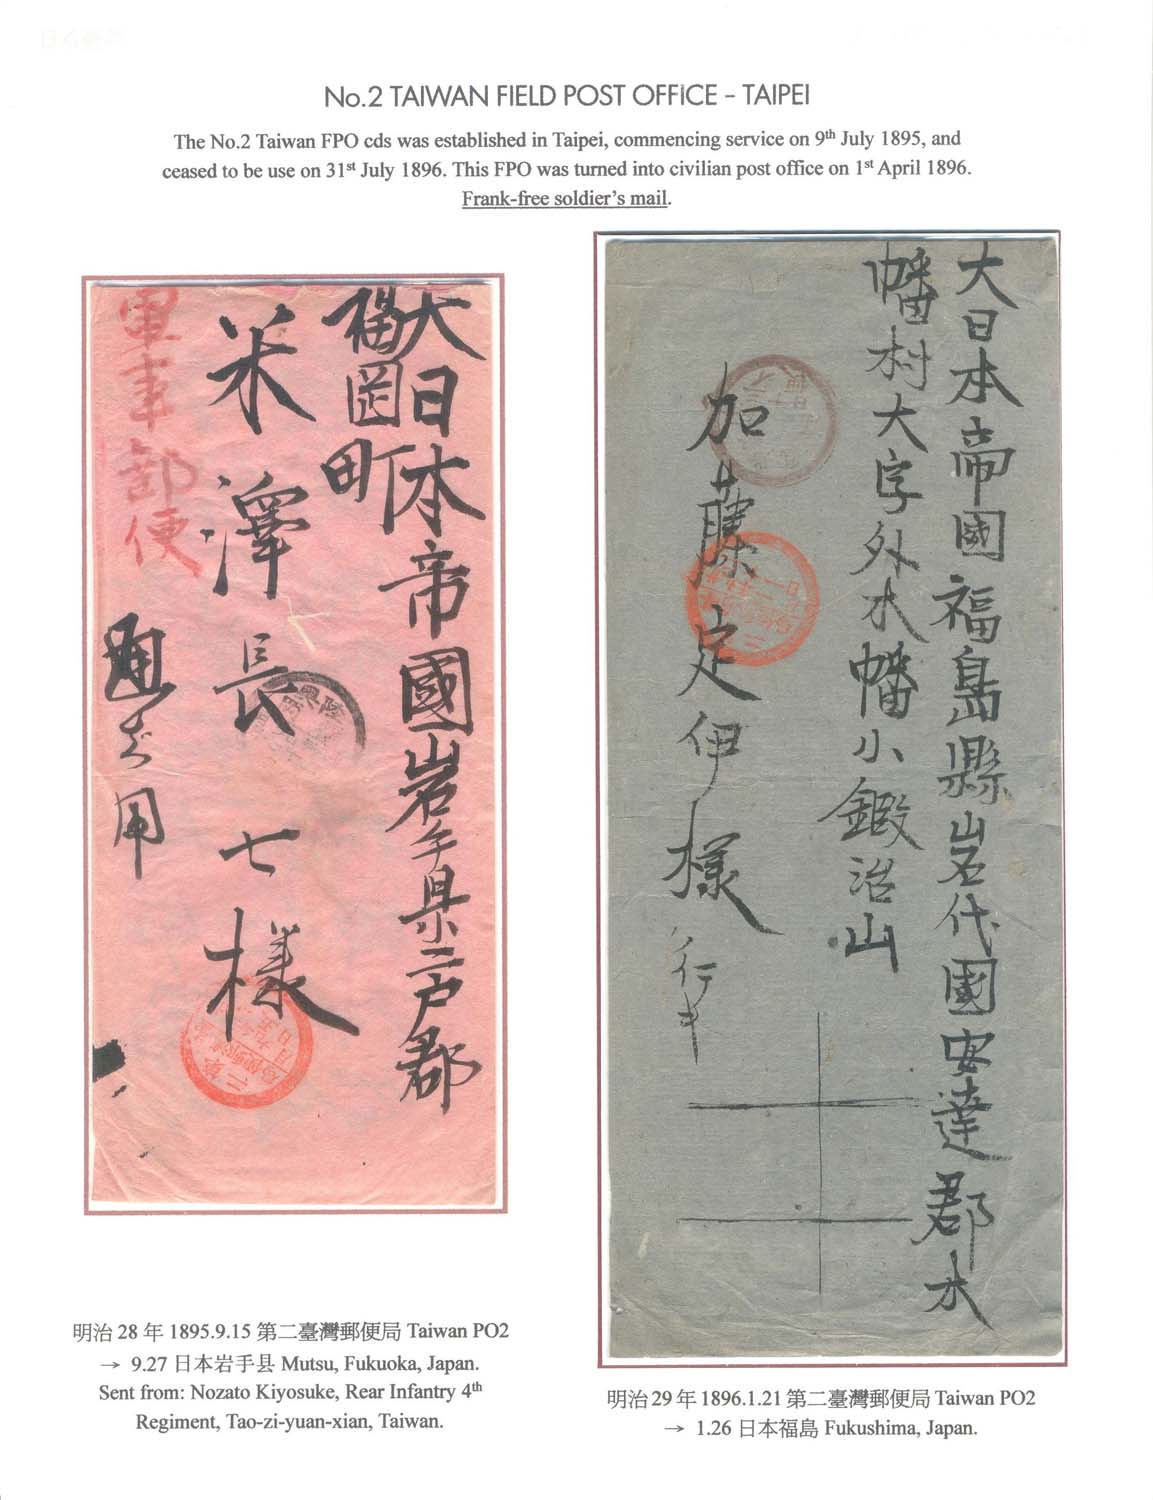 No.2 TAIWAN FIELD POST OFFICE – TAIPEI
The No.2 Taiwan FPO cds was established in Taipei, commencing service on 9th July 1895, and
ceased to be use on 31st July 1896. This FPO was turned into civilian post office on 1st April 1896.
Frank-free soldier's mail.
大日本帝國岩手県二戸郡
福岡町
米澤長七様
軍事郵便
用
大日本帝國福島縣岩代國安達郡木
幡村大字外木幡小鍛治山
加藤定伊様
行
明治 28 年 1895.9.15 第二臺灣郵便局 Taiwan PO2
→ 9.27 日本岩手县 Mutsu, Fukuoka, Japan.
Sent from: Nozato Kiyosuke, Rear Infantry 4th
Regiment, Tao-zi-yuan-xian, Taiwan.
明治 29 年 1896.1.21 第二臺灣郵便局 Taiwan PO2
→ 1.26 日本福島 Fukushima, Japan.